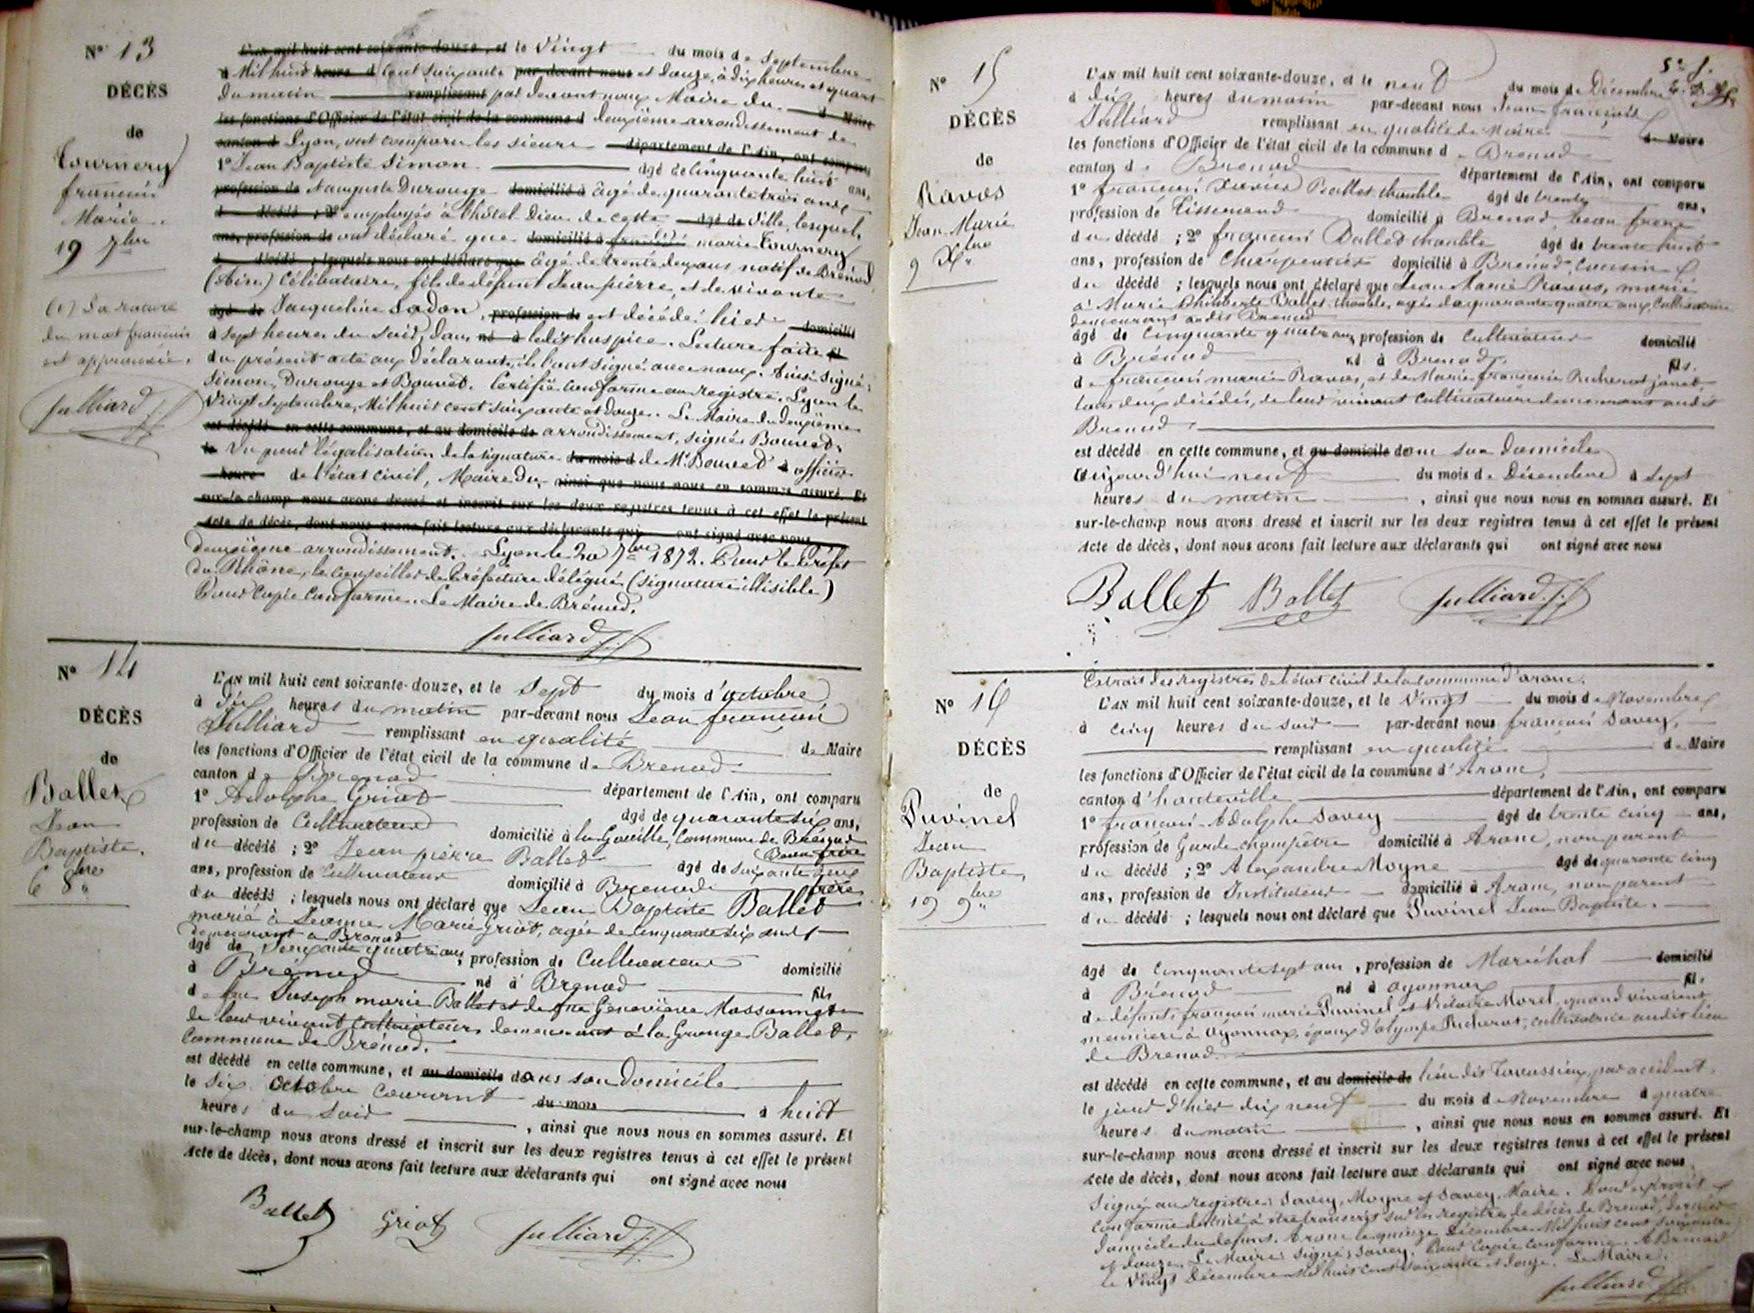 N° 13
DÉCÈS
de
Tournery
françois
Marie.
19 7bre
(1) La rature
du mot françois
est approuvée.
Julliard J. f.
L'an mil huit cent soixante-douze, et le Vingt du mois de Septembre
Mil huit cent soixante et douze, à dix heures et quart
du matin par devant nous Maire du
deuxième arrondissement de
Lyon, ont comparu les sieurs
1° Jean Baptiste Simon âgé de cinquante huit ans,
N auguste Durouge âgé de quarante trois ans
employés à l'hôtel Dieu de cette Ville, lesquels
ont déclaré que marie Tournery
âgé de trente deux ans natif de Brénod
(Ain) Célibataire, fils de défunt Jean pierre, et de vivante
Jacqueline Sadon, est décédé hier
à sept heures du soir, dans ledit hospice. Lecture faite
du présent acte aux déclarants, ils l'ont signé avec nous. Ainsi signé:
Simon, Durouge et Bouvet. Certifié conforme au registre. Lyon le
Vingt septembre, Mil huit cent soixante et douze. Le Maire du deuxième
arrondissement, signé: Bouvet.
Vu pour légalisation de la signature de Mr Bouvet officier
de l'état civil, Maire du
deuxième arrondissement. Lyon le 20 7bre 1872. Pour le Préfet
du Rhône, le Conseiller de Préfecture délégué (signature illisible)
Pour Copie Conforme. Le Maire de Brénod.
Julliard J. f.
N° 14
DÉCÈS
de
Ballet
Jean
Baptiste.
6 8bre
L'AN mil huit cent soixante-douze, et le Sept du mois d'octobre
à dix heures du matin par-devant nous Jean françois
Julliard remplissant en qualité de Maire
les fonctions d'Officier de l'état civil de la commune de Brenod
canton de Brenod département de l'Ain, ont comparu
1° Adolphe Griot âgé de quarante six ans,
profession de Cultivateur domicilié à la Gouille, Commune de Brénod Beau frère
du décédé ; 2° Jean pierre Ballet âgé de soixante
ans, profession de Cultivateur domicilié à Brenod frère
du décédé ; lesquels nous ont déclaré que Jean Baptiste Ballet
marié à Jeanne Marie Griot, agée de cinquante six ans
demeurant à Brenod
âgé de soixante quatre ans, profession de Cultivateur domicilié
à Brénod né à Brenod fils
de feu Joseph marie Ballet et de feue Geneviève Massonnet
de leur vivant Cultivateurs demeurant à la Grange Ballet,
Commune de Brénod.
est décédé en cette commune, et au domicile dans son Domicile
le six octobre courant du mois à huit
heures du Soir , ainsi que nous nous en sommes assuré. Et
sur-le-champ nous avons dressé et inscrit sur les deux registres tenus à cet effet le présent
Acte de décès, dont nous avons fait lecture aux déclarants qui ont signé avec nous
Ballet Griot Julliard J. f.
N° 15
DÉCÈS
de
Ravos
Jean Marie
9 Xbre
L'AN mil huit cent soixante-douze, et le neuf du mois de Décembre
à dix heures du matin par-devant nous Jean françois
Julliard remplissant en qualité de Maire de Maire
les fonctions d'Officier de l'état civil de la commune de Brenod
canton de Brenod département de l'Ain, ont comparu
1° françois Xavier Ballet chamble âgé de trente ans,
profession de Tisserand domicilié à Brenod beau frère
du décédé ; 2° françois Ballet chamble âgé de trente huit
ans, profession de Charpentier domicilié à Brénod, cousin
du décédé ; lesquels nous ont déclaré que Jean Marie Ravos, marié
à Marie Philiberte Ballet chamble, agée de quarante quatre ans, Cultivatrice
demeurant audit Brenod
âgé de cinquante quatre ans, profession de Cultivateur domicilié
à Brénod né à Brenod, fils
de françois marie Ravos, et de Marie françoise Pucherat janet,
tous deux décédés, de leur vivant cultivateurs demeurant audit
Brenod.
est décédé en cette commune, et au domicile dans son domicile
Aujourd'hui neuf du mois de Décembre à sept
heures du matin , ainsi que nous nous en sommes assuré. Et
sur-le-champ nous avons dressé et inscrit sur les deux registres tenus à cet effet le présent
Acte de décès, dont nous avons fait lecture aux déclarants qui ont signé avec nous
Ballet Ballet Julliard J. f.
N° 16
DÉCÈS
de
Puvinel
Jean
Baptiste,
19 9bre
Extrait des registres de l'état civil de la commune d'aranc.
L'AN mil huit cent soixante-douze, et le Vingt du mois de Novembre
à cinq heures du soir par-devant nous françois Savey,
remplissant en qualité de Maire
les fonctions d'Officier de l'état civil de la commune d'Aranc,
canton d'hauteville département de l'Ain, ont comparu
1° françois Adolphe Savey âgé de trente cinq ans,
profession de Garde champêtre domicilié à Aranc, non parent
du décédé ; 2° Alexandre Moyne âgé de quarante cinq
ans, profession de Instituteur domicilié à Aranc, non parent
du décédé ; lesquels nous ont déclaré que Puvinel Jean Baptiste.
âgé de cinquante sept ans, profession de Maréchal domicilié
à Brénod né à oyonnax fils
de défunts françois marie Puvinel et Victoire Morel, quand vivaient
meuniers à oyonnax, époux d'olympe Pucherat, cultivatrice audit lieu
de Brenod.
est décédé en cette commune, et au domicile de lieu dit Tarassieux, par accident,
le jour d'hier dix neuf du mois de Novembre à quatre
heures du matin , ainsi que nous nous en sommes assuré. Et
sur-le-champ nous avons dressé et inscrit sur les deux registres tenus à cet effet le présent
Acte de décès, dont nous avons fait lecture aux déclarants qui ont signé avec nous
Signé au registre: Savey, Moyne et Savey, Maire. Pour extrait
conforme destiné à être transcrit sur les registres de décès de Brenod, dernier
domicile du défunt. Aranc le quinze Décembre Mil huit cent soixante
et douze. Le Maire: signé: Savey. Pour Copie conforme. A Brenod
le Vingt Décembre Mil huit cent soixante et douze. Le Maire.
Julliard J. f.